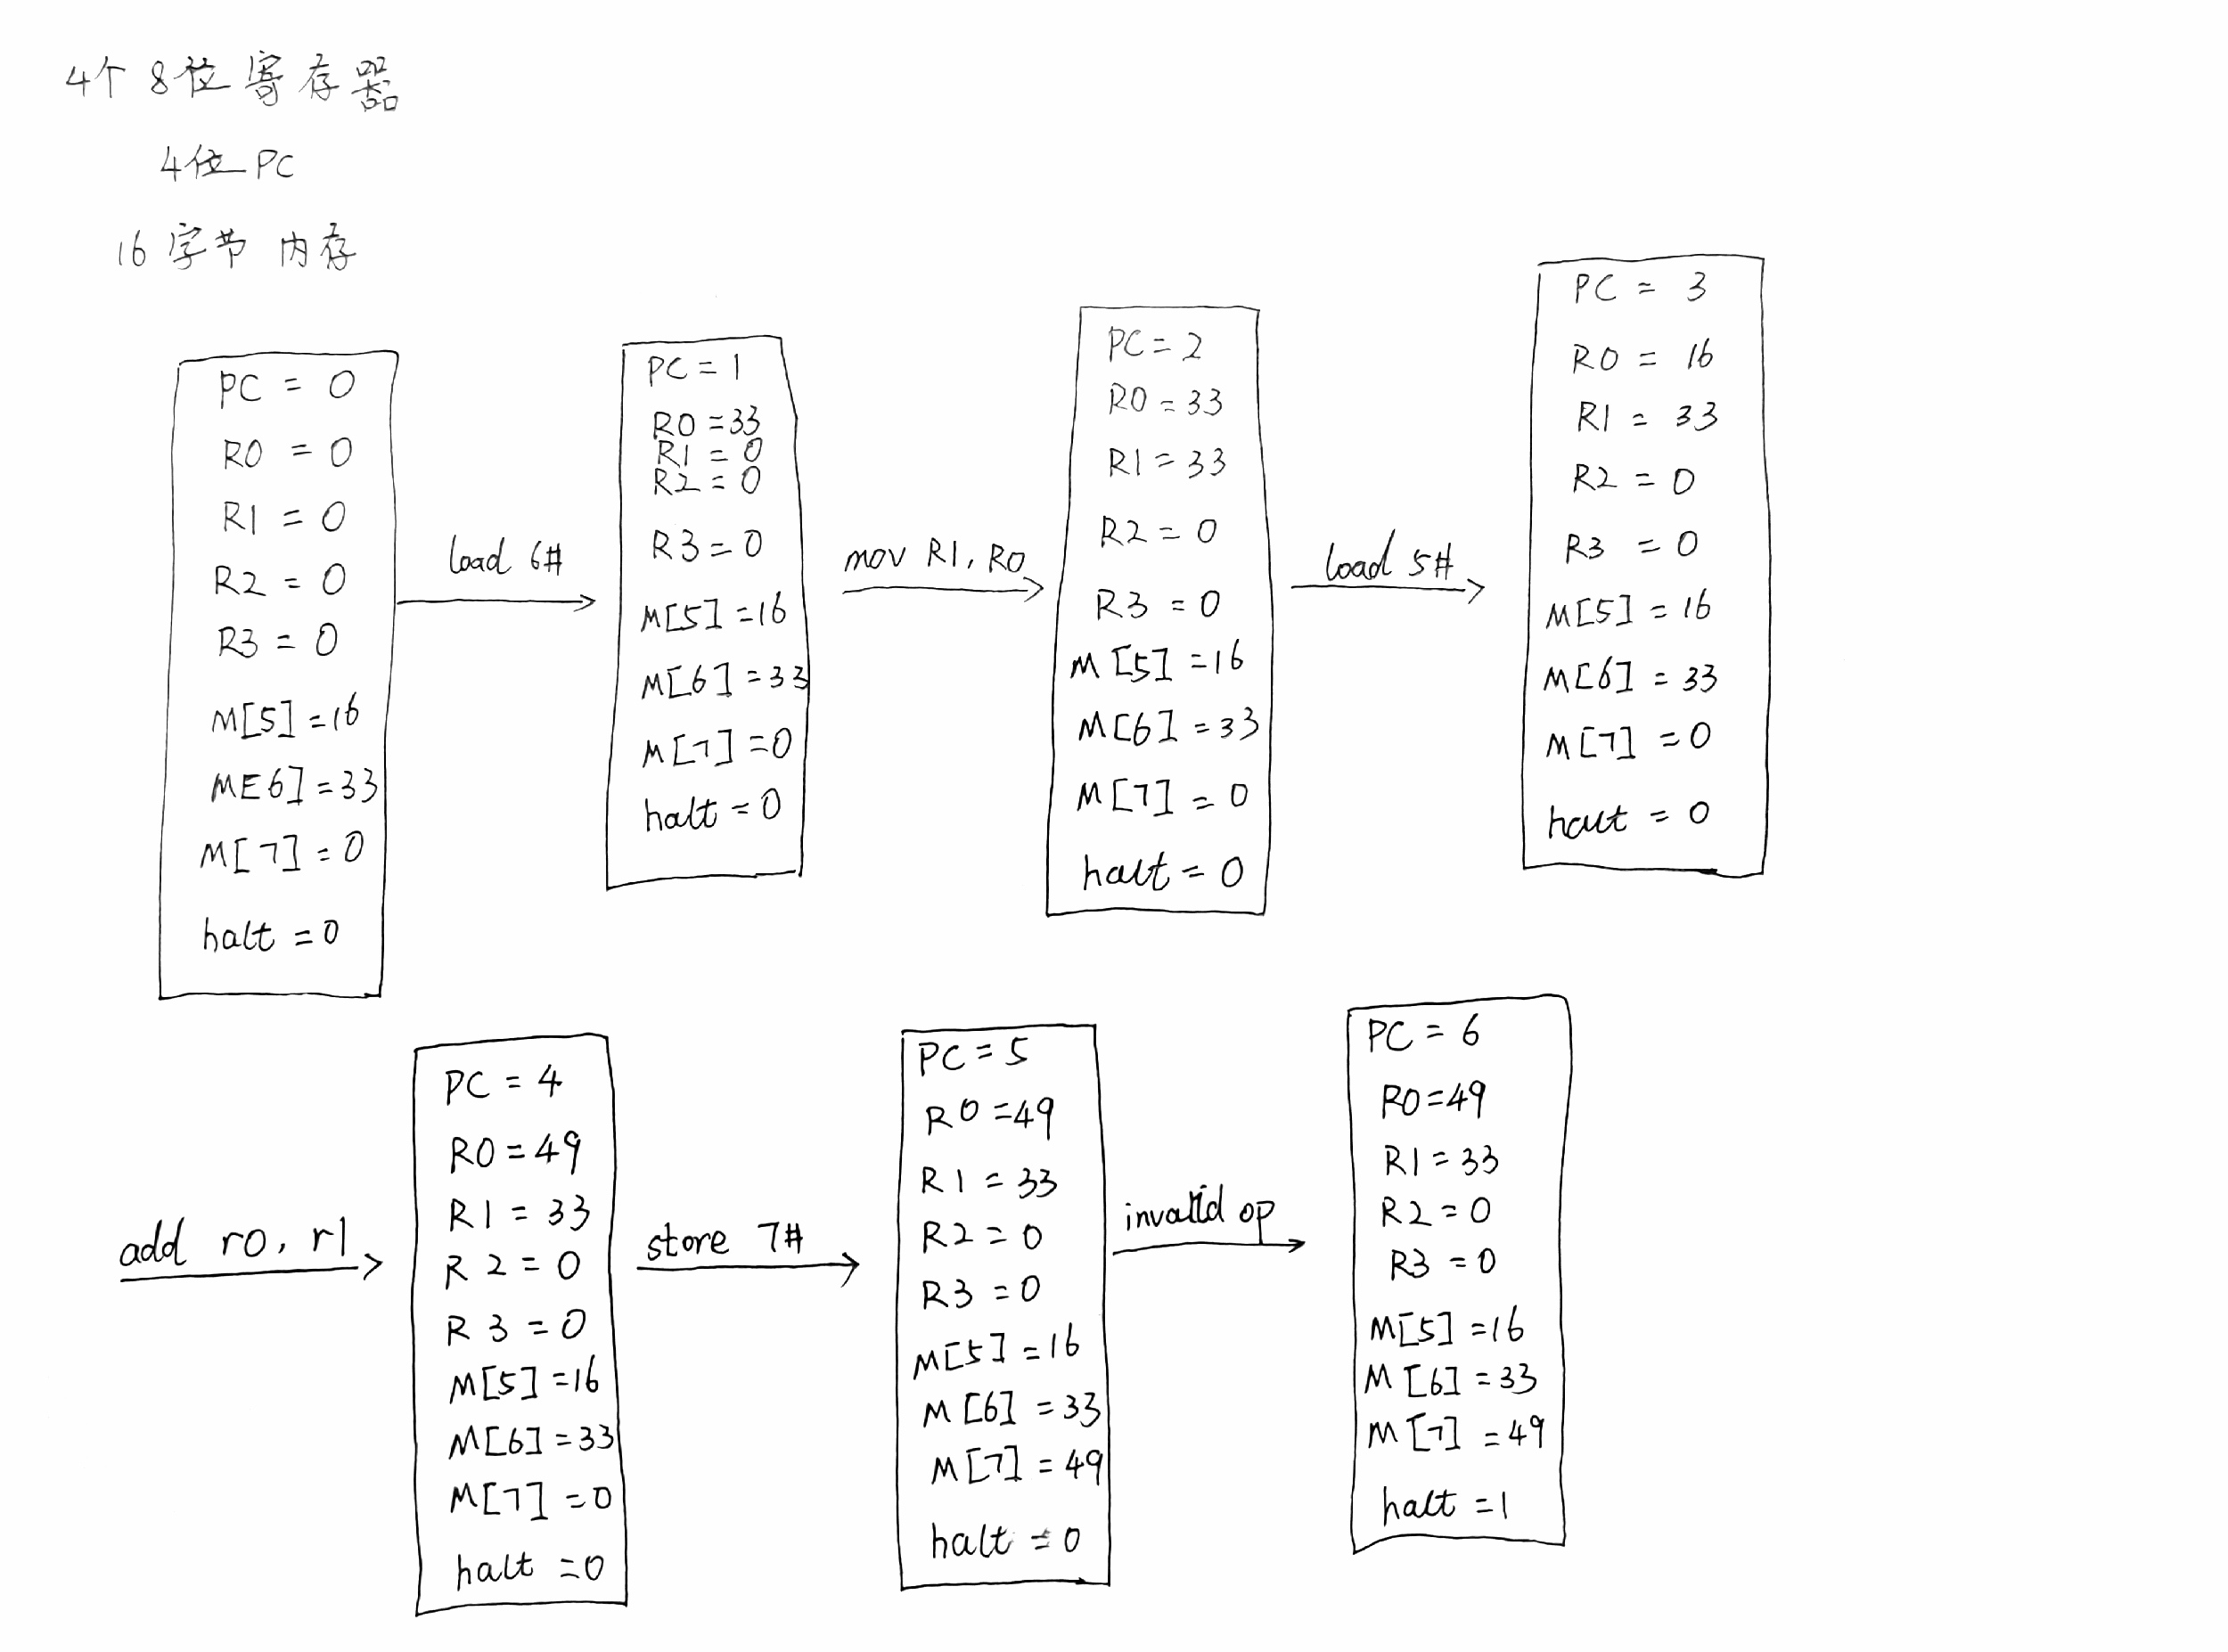 4个 8位 寄存器
4位 PC
16 字节 内存
PC = 0
R0 = 0
R1 = 0
R2 = 0
R3 = 0
M[5] = 16
M[6] = 33
M[7] = 0
halt = 0
load 6#
PC = 1
R0 = 33
R1 = 0
R2 = 0
R3 = 0
M[5] = 16
M[6] = 33
M[7] = 0
halt = 0
mov R1, R0
PC = 2
R0 = 33
R1 = 33
R2 = 0
R3 = 0
M[5] = 16
M[6] = 33
M[7] = 0
halt = 0
load 5#
PC = 3
R0 = 16
R1 = 33
R2 = 0
R3 = 0
M[5] = 16
M[6] = 33
M[7] = 0
halt = 0
add r0, r1
PC = 4
R0 = 49
R1 = 33
R2 = 0
R3 = 0
M[5] = 16
M[6] = 33
M[7] = 0
halt = 0
store 7#
PC = 5
R0 = 49
R1 = 33
R2 = 0
R3 = 0
M[5] = 16
M[6] = 33
M[7] = 49
halt = 0
invalid op
PC = 6
R0 = 49
R1 = 33
R2 = 0
R3 = 0
M[5] = 16
M[6] = 33
M[7] = 49
halt = 1